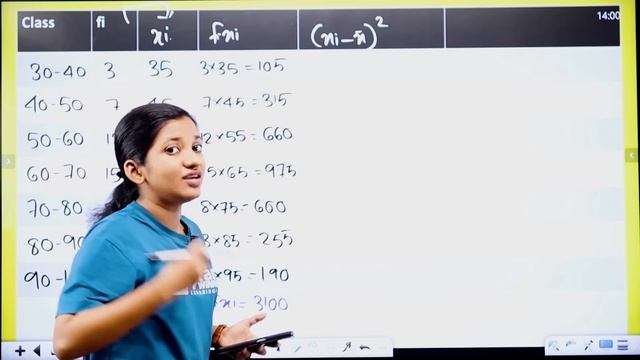 Class fi xi fixi (xi-x̄)² 14:00
30-40 3 35 3×35=105
40-50 7 7×45=315
50-60 2×55=660
60-70 15 5×65=975
70-80 8×75=600
80-90 3×85=255
×95=190
xi=3100